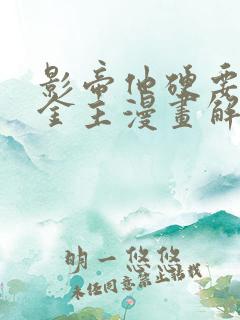 影帝他硬要
金主漫畫解
明一悠悠
未经同意禁止转载